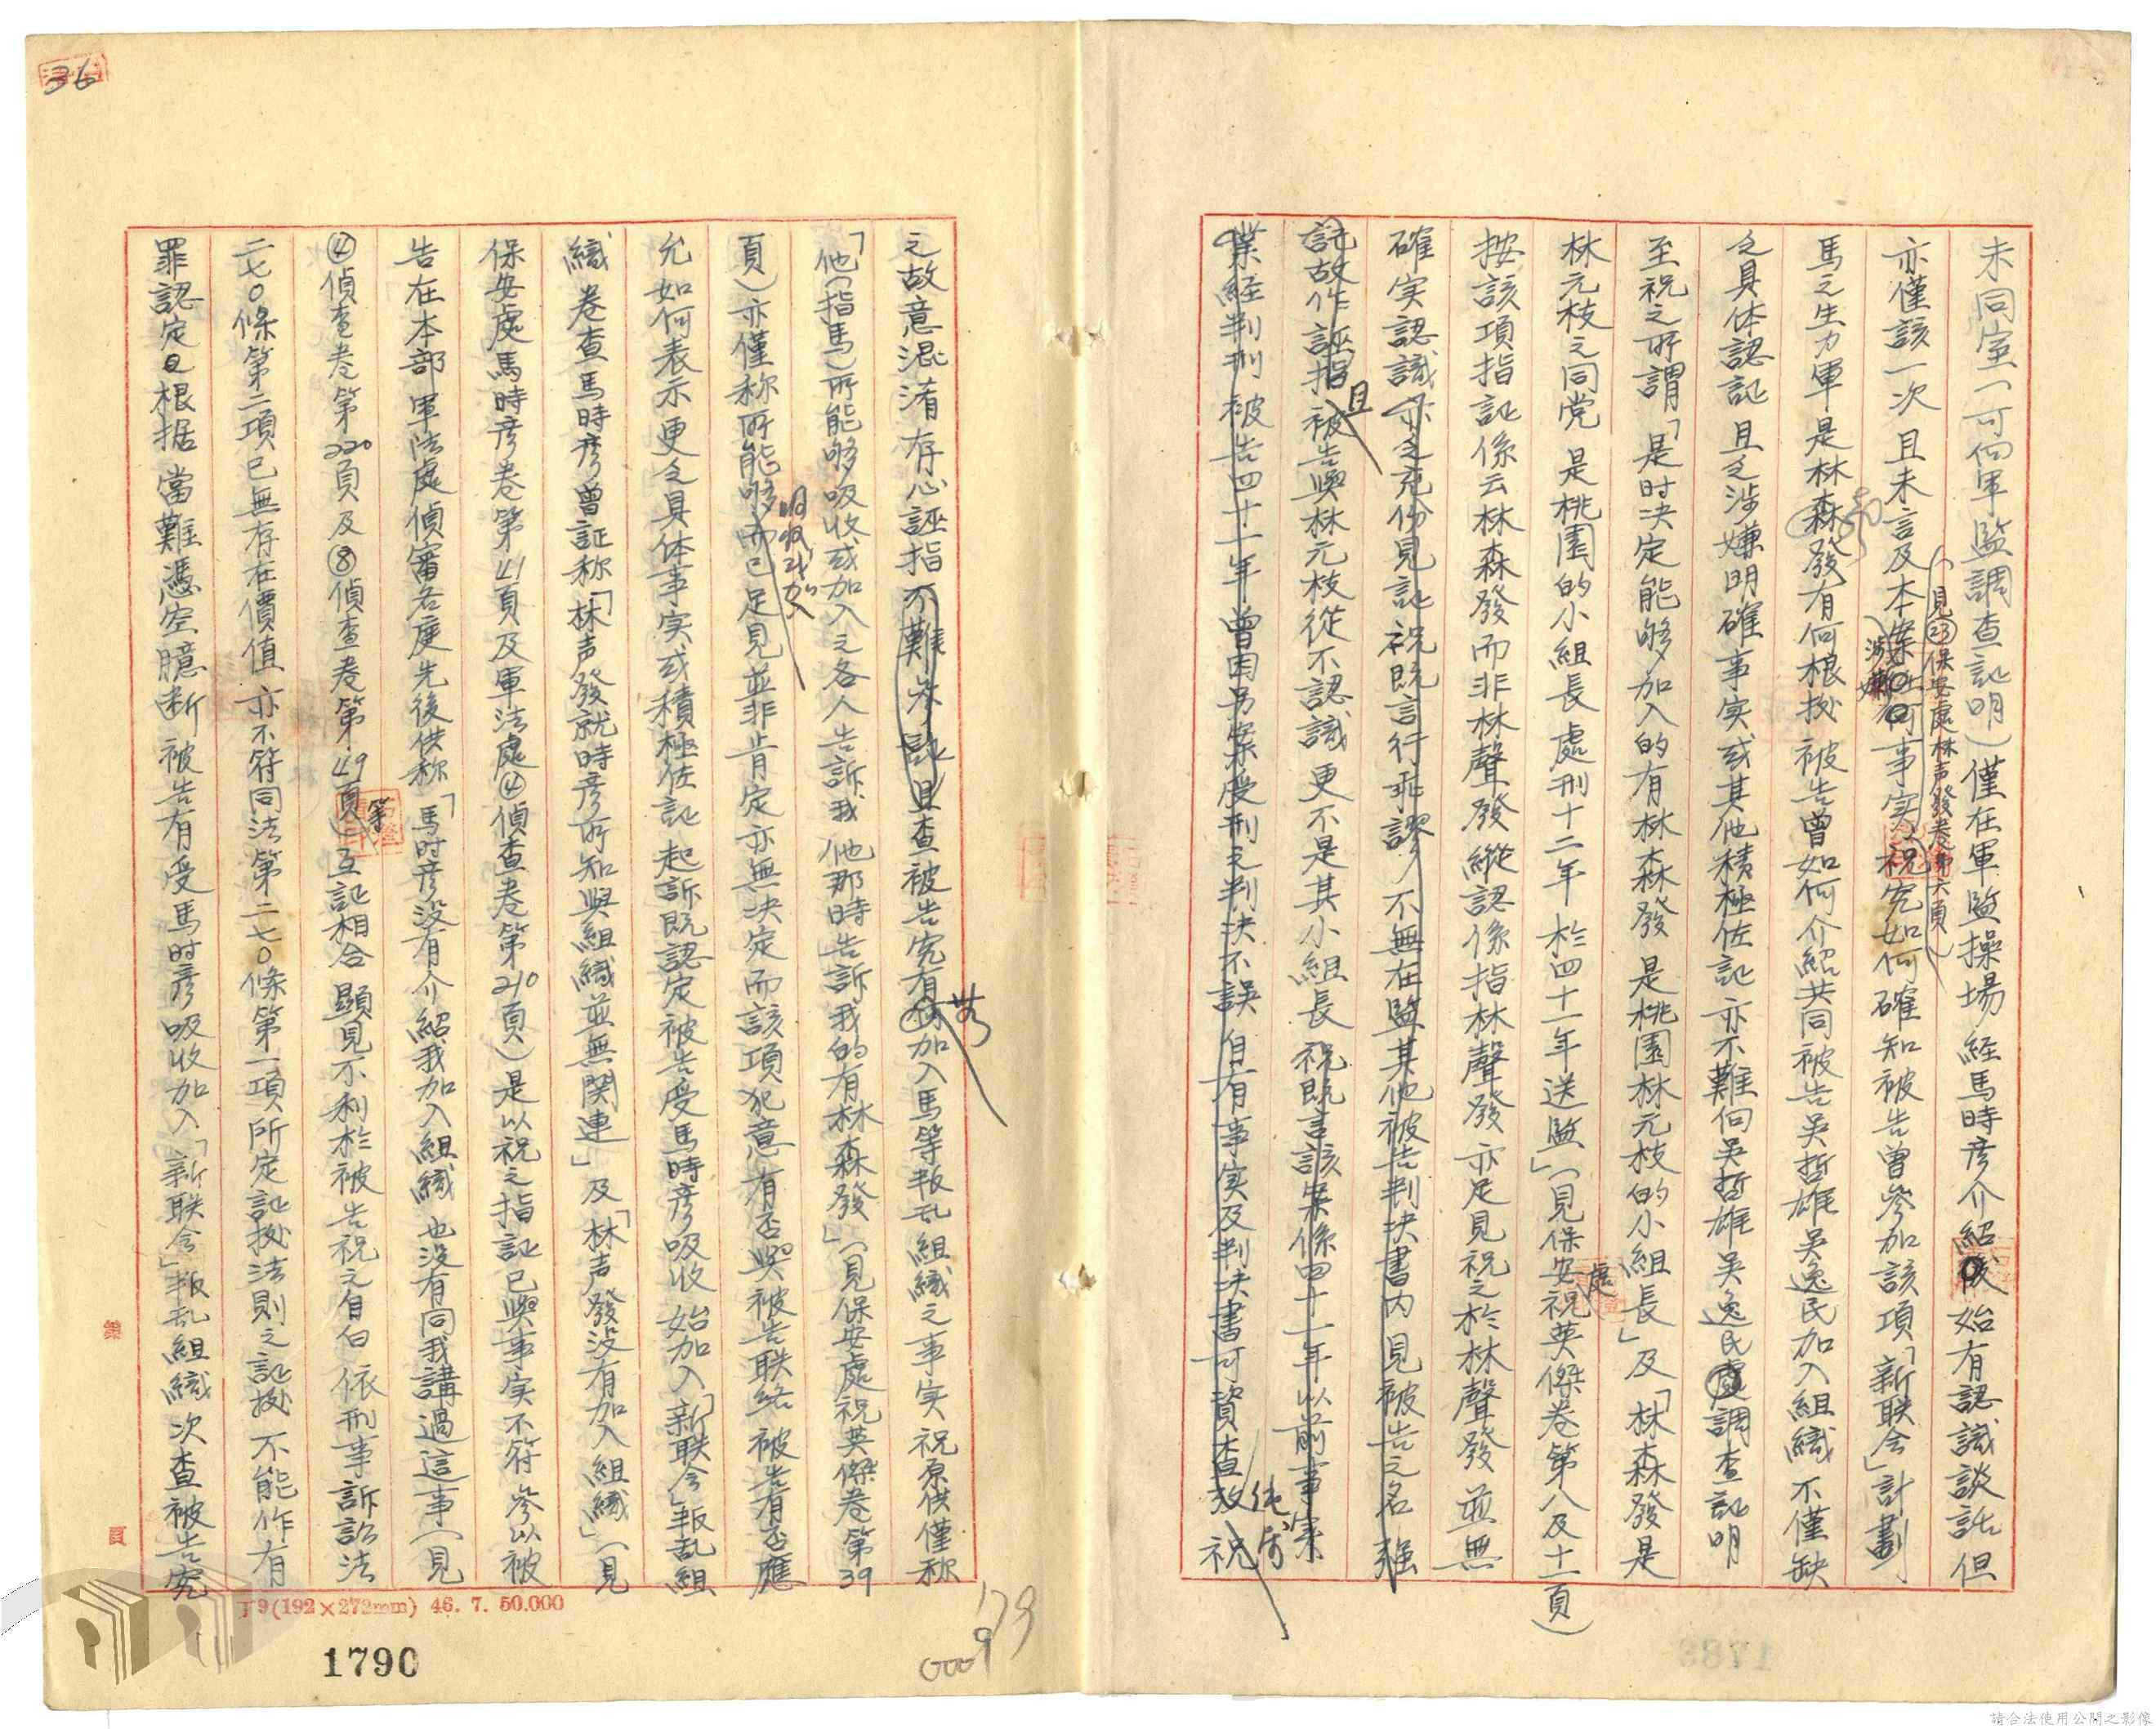 未同室(可向軍監調查証明)僅在軍監操場経馬時彦介紹後始有認識談話但
亦僅該一次且未言及本案任何事実祝究如何確知被告曾參加該項「新联会」計劃
(見㉓保安處林声發卷第六頁)
涉嫌
馬之生力軍是林森發有何根拠被告曾如何介紹共同被告吳哲雄吳逸民加入組織不僅缺
乏具体認証且乏涉嫌明確事実或其他積極佐証亦不難向吳哲雄吳逸民處調查証明
至祝之所謂「是时决定能够加入的有林森發是桃園林元枝的小組長」及「林森發是
林元枝之同党是桃園的小組長處刑十二年於四十一年送監」(見保安處祝英傑卷第八及十一頁)
按該項指証係云林森發而非林聲發縱認係指林聲發亦足見祝之於林聲發並無
確実認識亦乏充份見証祝既言行乖謬不無在監其他被告判决書内見被告之名強
託故作誣指被告與林元枝從不認識更不是其小組長祝既言該案係四十一年以前事案
且
業经判刑被告四十一年曾因另案受刑之判决不誤但有事実及判决書可資查攷祝
純屬
之故意混淆存心誣指不難參証且查被告究有何加入馬等叛乱組織之事実祝原供僅称
若
「他(指馬)所能够吸收或加入之各人告訴我他那時告訴我的有林森發」(見保安處祝英傑卷第39
頁)亦僅称所能够而已足見並非肯定亦無决定而該項犯意有否與被告联絡被告有否應
吸收或加入
允如何表示更乏具体事実或積極佐証起訴既認定被告受馬時彦吸收始加入「新联会」叛乱組
織卷查馬時彦曾証称「林声發就時彦所知與組織並無関連」及「林声發没有加入組織」(見
保安處馬時彦卷第41頁及軍法處④偵查卷第210頁)是以祝之指証已與事実不符參以被
告在本部軍法處偵審各庭先後供称「馬时彦没有介紹我加入組織也没有同我講過這事(見
④偵查卷第220頁及⑧偵查卷第49頁)互証相合顯見不利於被告祝之自白依刑事訴訟法
第
二七〇條第二項已無存在價值亦不符同法第二七〇條第一項所定証拠法則之証拠不能作有
罪認定且根据當難憑空臆断被告有受馬时彦吸收加入「新联会」叛乱組織次查被告究
36
頁
丁9(192×272mm) 46. 7. 50.000
1790
179
0009
請合法使用公開之影像